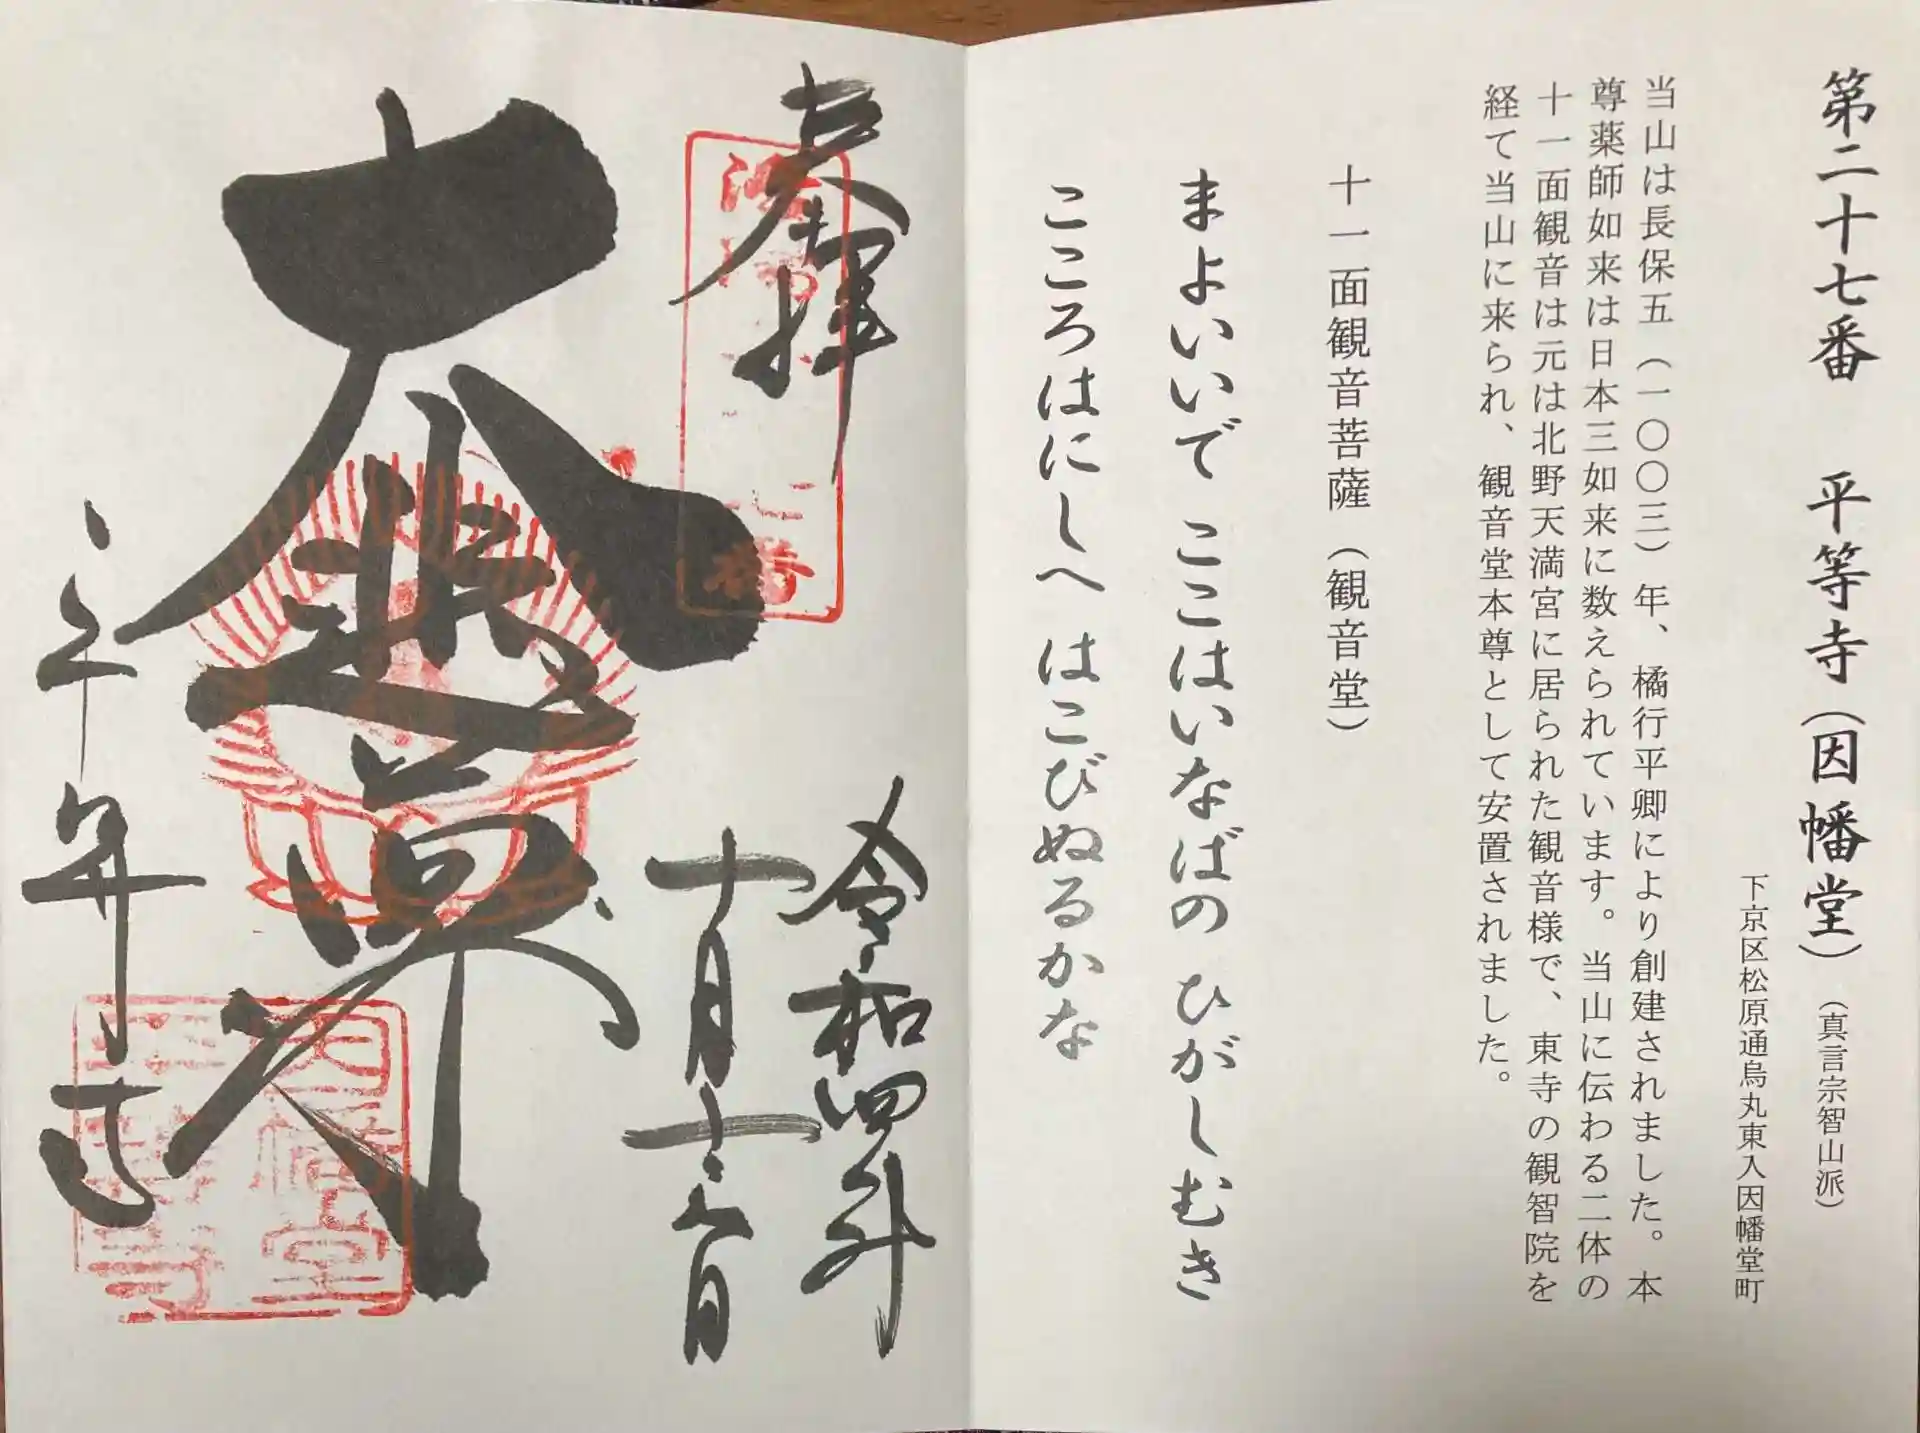 第二十七番 平等寺（因幡堂）（真言宗智山派）
下京区松原通烏丸東入因幡堂町
当山は長保五（一〇〇三）年、橘行平卿により創建されました。本
尊薬師如来は日本三如来に数えられています。当山に伝わる二体の
十一面観音は元は北野天満宮に居られた観音様で、東寺の観智院を
経て当山に来られ、観音堂本尊として安置されました。
十一面観音菩薩（観音堂）
まよいいで ここはいなばの ひがしむき
こころはにしへ はこびぬるかな
奉拝
令和四年
十月十六日
大悲尊
平等寺